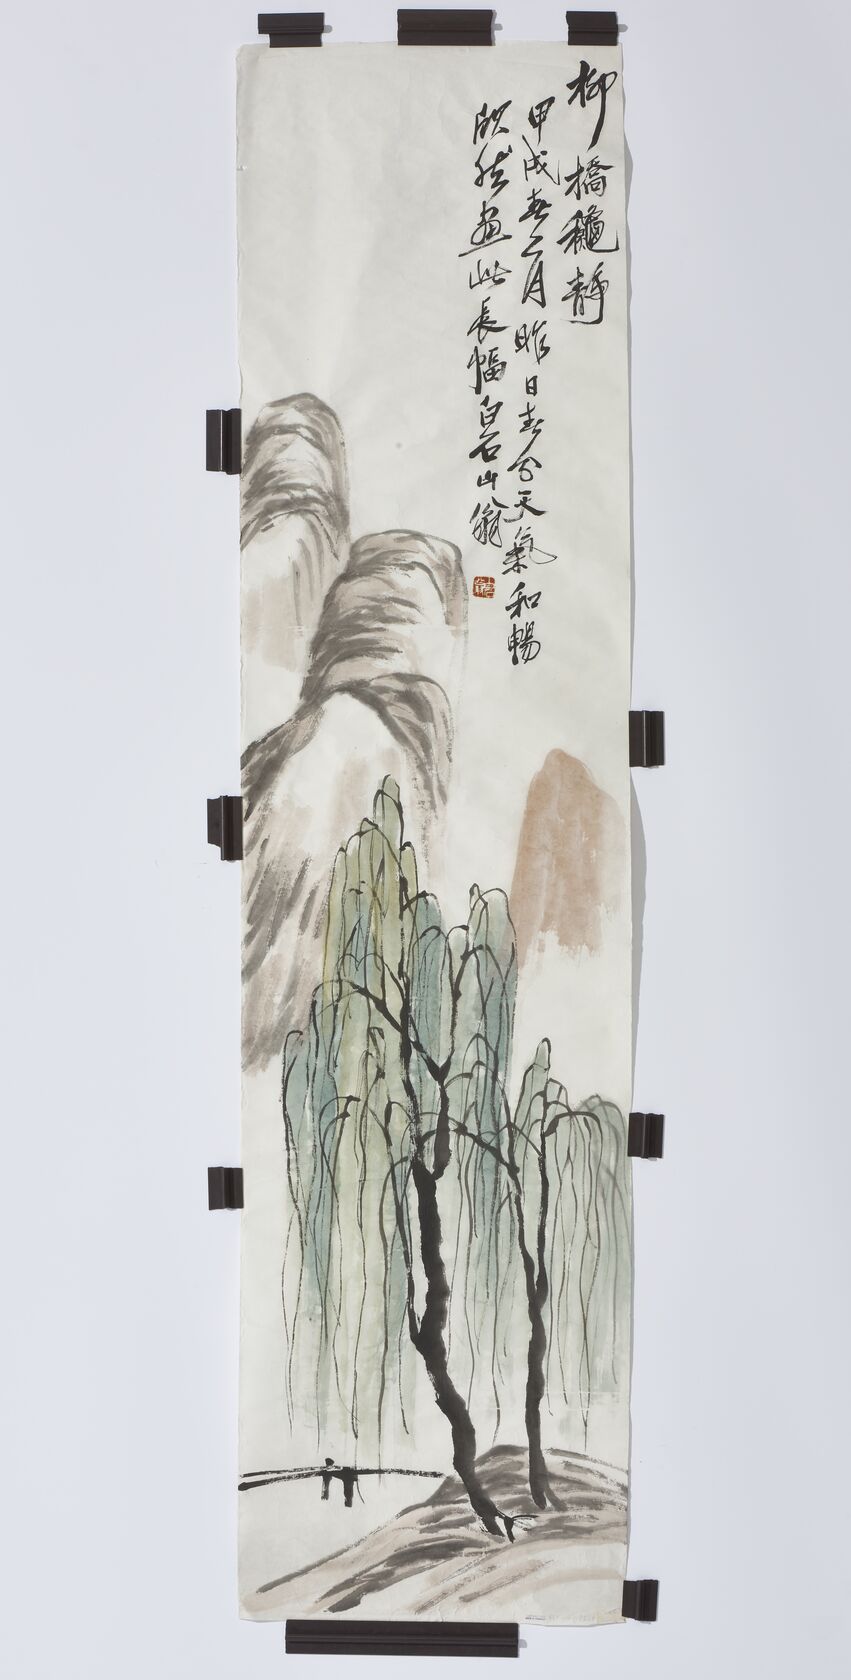 柳橋龝靜
甲戌春二月昨日春分天氣和暢
欣然畫此長幅白石山翁